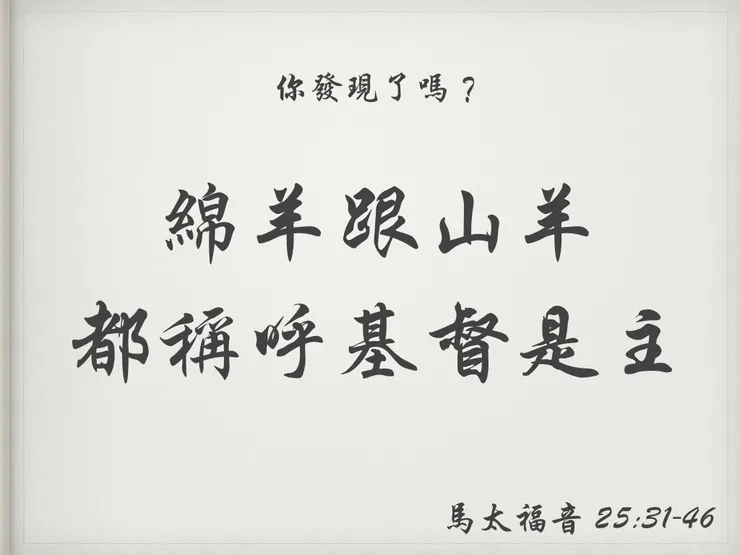 你發現了嗎？
綿羊跟山羊
都稱呼基督是主
馬太福音 25:31-46